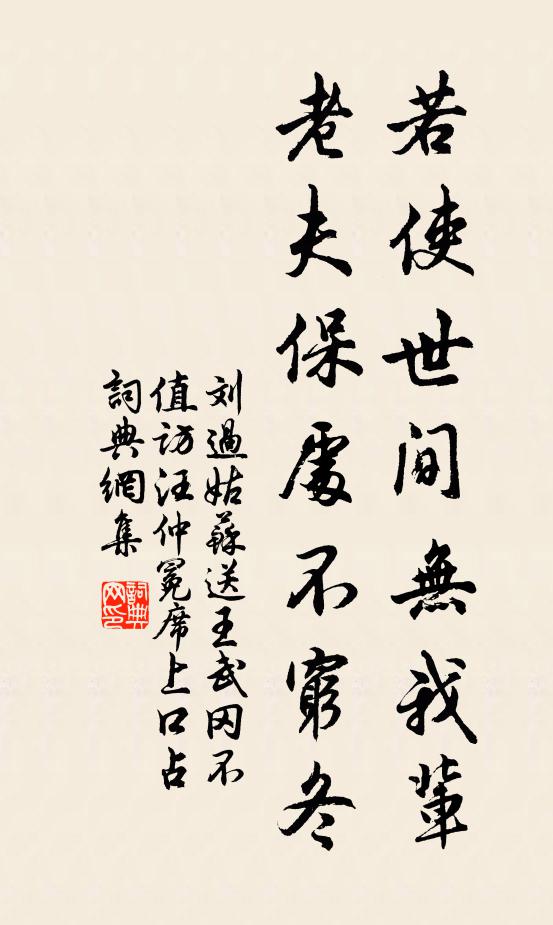 若使世間無我輩
老夫保處不窮冬
刘過姑蘇送王武冈不
值訪汪仲冕席上口占
詞典網集
詞典網印